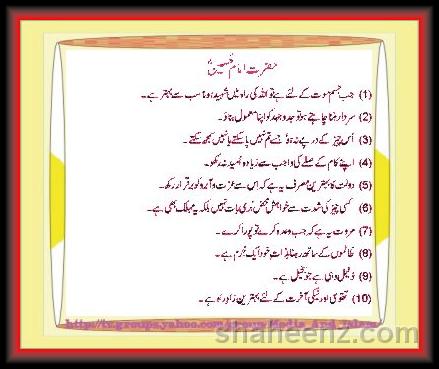 حضرت امام حسینؓ
(1) جب جسم موت کے لئے ہے تو اللہ کی راہ میں شہید ہونا سب سے بہتر ہے۔
(2) سردار بننا چاہتے ہو تو جدوجہد کو اپنا معمول بناؤ۔
(3) اُس چیز کے درپے نہ ہو جسے تم نہیں پاسکتے یا نہیں سمجھ سکتے۔
(4) اپنے کام کے صلے کی واجب سے زیادہ اُمید نہ رکھو۔
(5) دولت کا بہترین مصرف یہ ہے کہ اس سے عزت و آبرو کو برقرار رکھ۔
(6) کسی چیز کی شدت سے خواہش محض بُری بات نہیں بلکہ یہ مہلک بھی ہے۔
(7) مروت یہ ہے کہ جب وعدہ کرے تو پورا کرے۔
(8) ظالموں کے ساتھ رہنا بذاتِ خود ایک جُرم ہے۔
(9) ذلیل وہی ہے جو بخیل ہے۔
(10) تقویٰ اور نیکی آخرت کے لئے بہترین زادِ راہ ہے۔
shaheenz.com